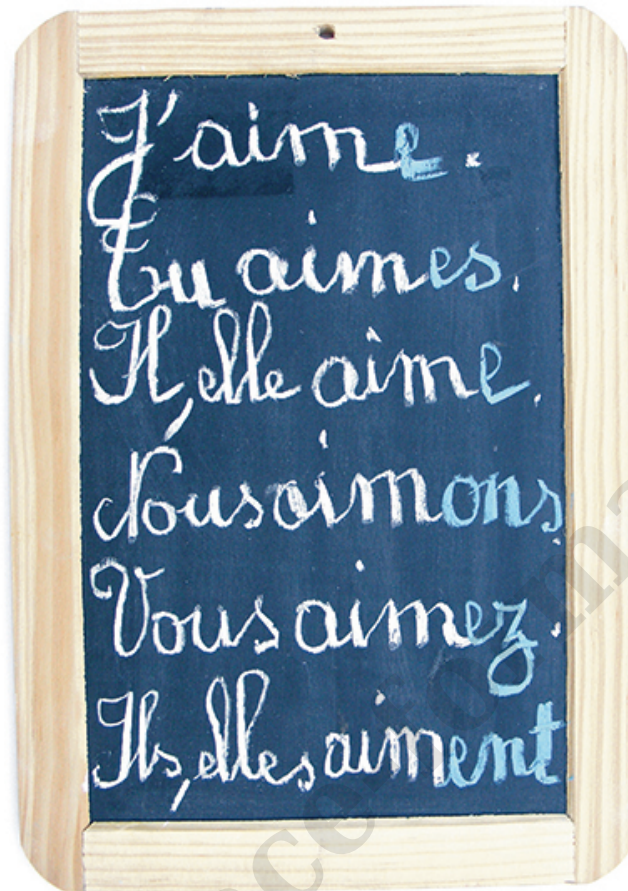 J'aime.
Tu aimes.
Il, elle aime.
Nous aimons
Vous aimez.
Ils, elles aiment